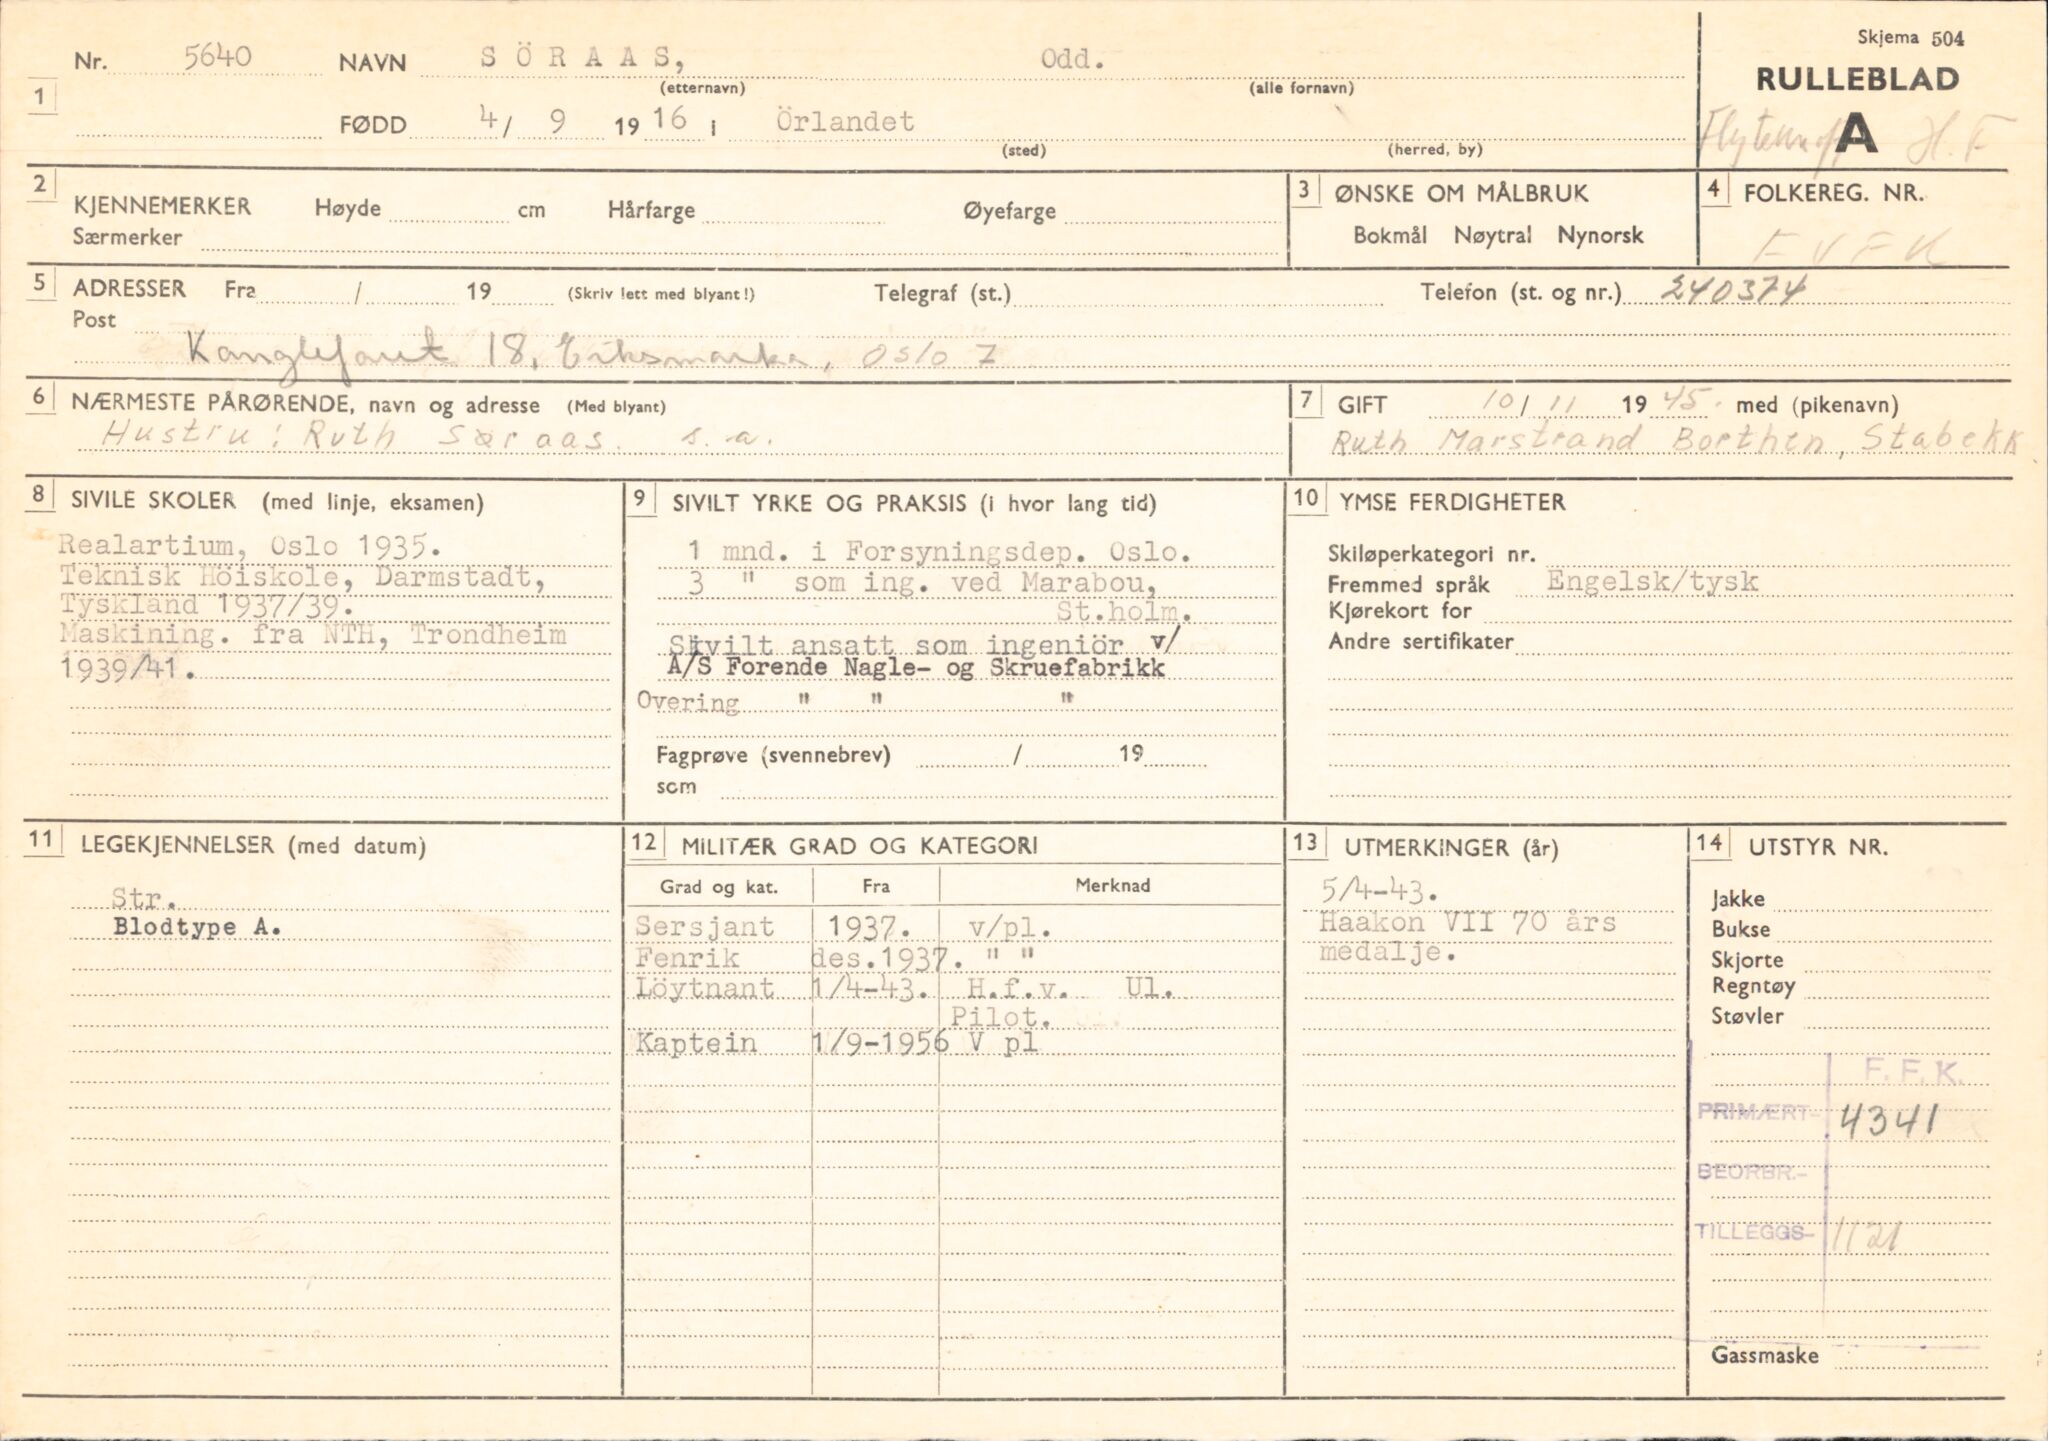 Skjema 504
RULLEBLAD
A H. F
1 Nr. 5640 NAVN SÖRAAS, Odd.
(etternavn) (alle fornavn)
FØDD 4/ 9 19 16 i Örlandet
(sted) (herred, by)
2 KJENNEMERKER Høyde cm Hårfarge Øyefarge
Særmerker
3 ØNSKE OM MÅLBRUK
Bokmål Nøytral Nynorsk
4 FOLKEREG. NR.
F V F K
5 ADRESSER Fra / 19 (Skriv lett med blyant!) Telegraf (st.) Telefon (st. og nr.) 240374
Post
18, Eiksmarka, Oslo
6 NÆRMESTE PÅRØRENDE, navn og adresse (Med blyant)
Hustru: Ruth Søraas. s.a.
7 GIFT 10/ 11 19 45. med (pikenavn)
Ruth Marstrand Borthen, Stabekk
8 SIVILE SKOLER (med linje, eksamen)
Realartium, Oslo 1935.
Teknisk Höiskole, Darmstadt,
Tyskland 1937/39.
Maskining. fra NTH, Trondheim
1939/41.
9 SIVILT YRKE OG PRAKSIS (i hvor lang tid)
1 mnd. i Forsyningsdep. Oslo.
3 " som ing. ved Marabou,
St.holm.
Sivilt ansatt som ingeniör v/
A/S Forende Nagle- og Skruefabrikk
Overing " " "
Fagprøve (svennebrev) / 19
som
10 YMSE FERDIGHETER
Skiløperkategori nr.
Fremmed språk Engelsk/tysk
Kjørekort for
Andre sertifikater
11 LEGEKJENNELSER (med datum)
Str.
Blodtype A.
12 MILITÆR GRAD OG KATEGORI
Grad og kat. Fra Merknad
Sersjant 1937. v/pl.
Fenrik des.1937. " "
Löytnant 1/4-43. H.f.v. Ul.
Pilot.
Kaptein 1/9-1956 V pl
13 UTMERKINGER (år)
5/4-43.
Haakon VII 70 års
medalje.
14 UTSTYR NR.
Jakke
Bukse
Skjorte
Regntøy
Støvler
F. F. K.
PRIMÆRT- 4341
BEORBR.-
TILLEGGS- 1121
Gassmaske